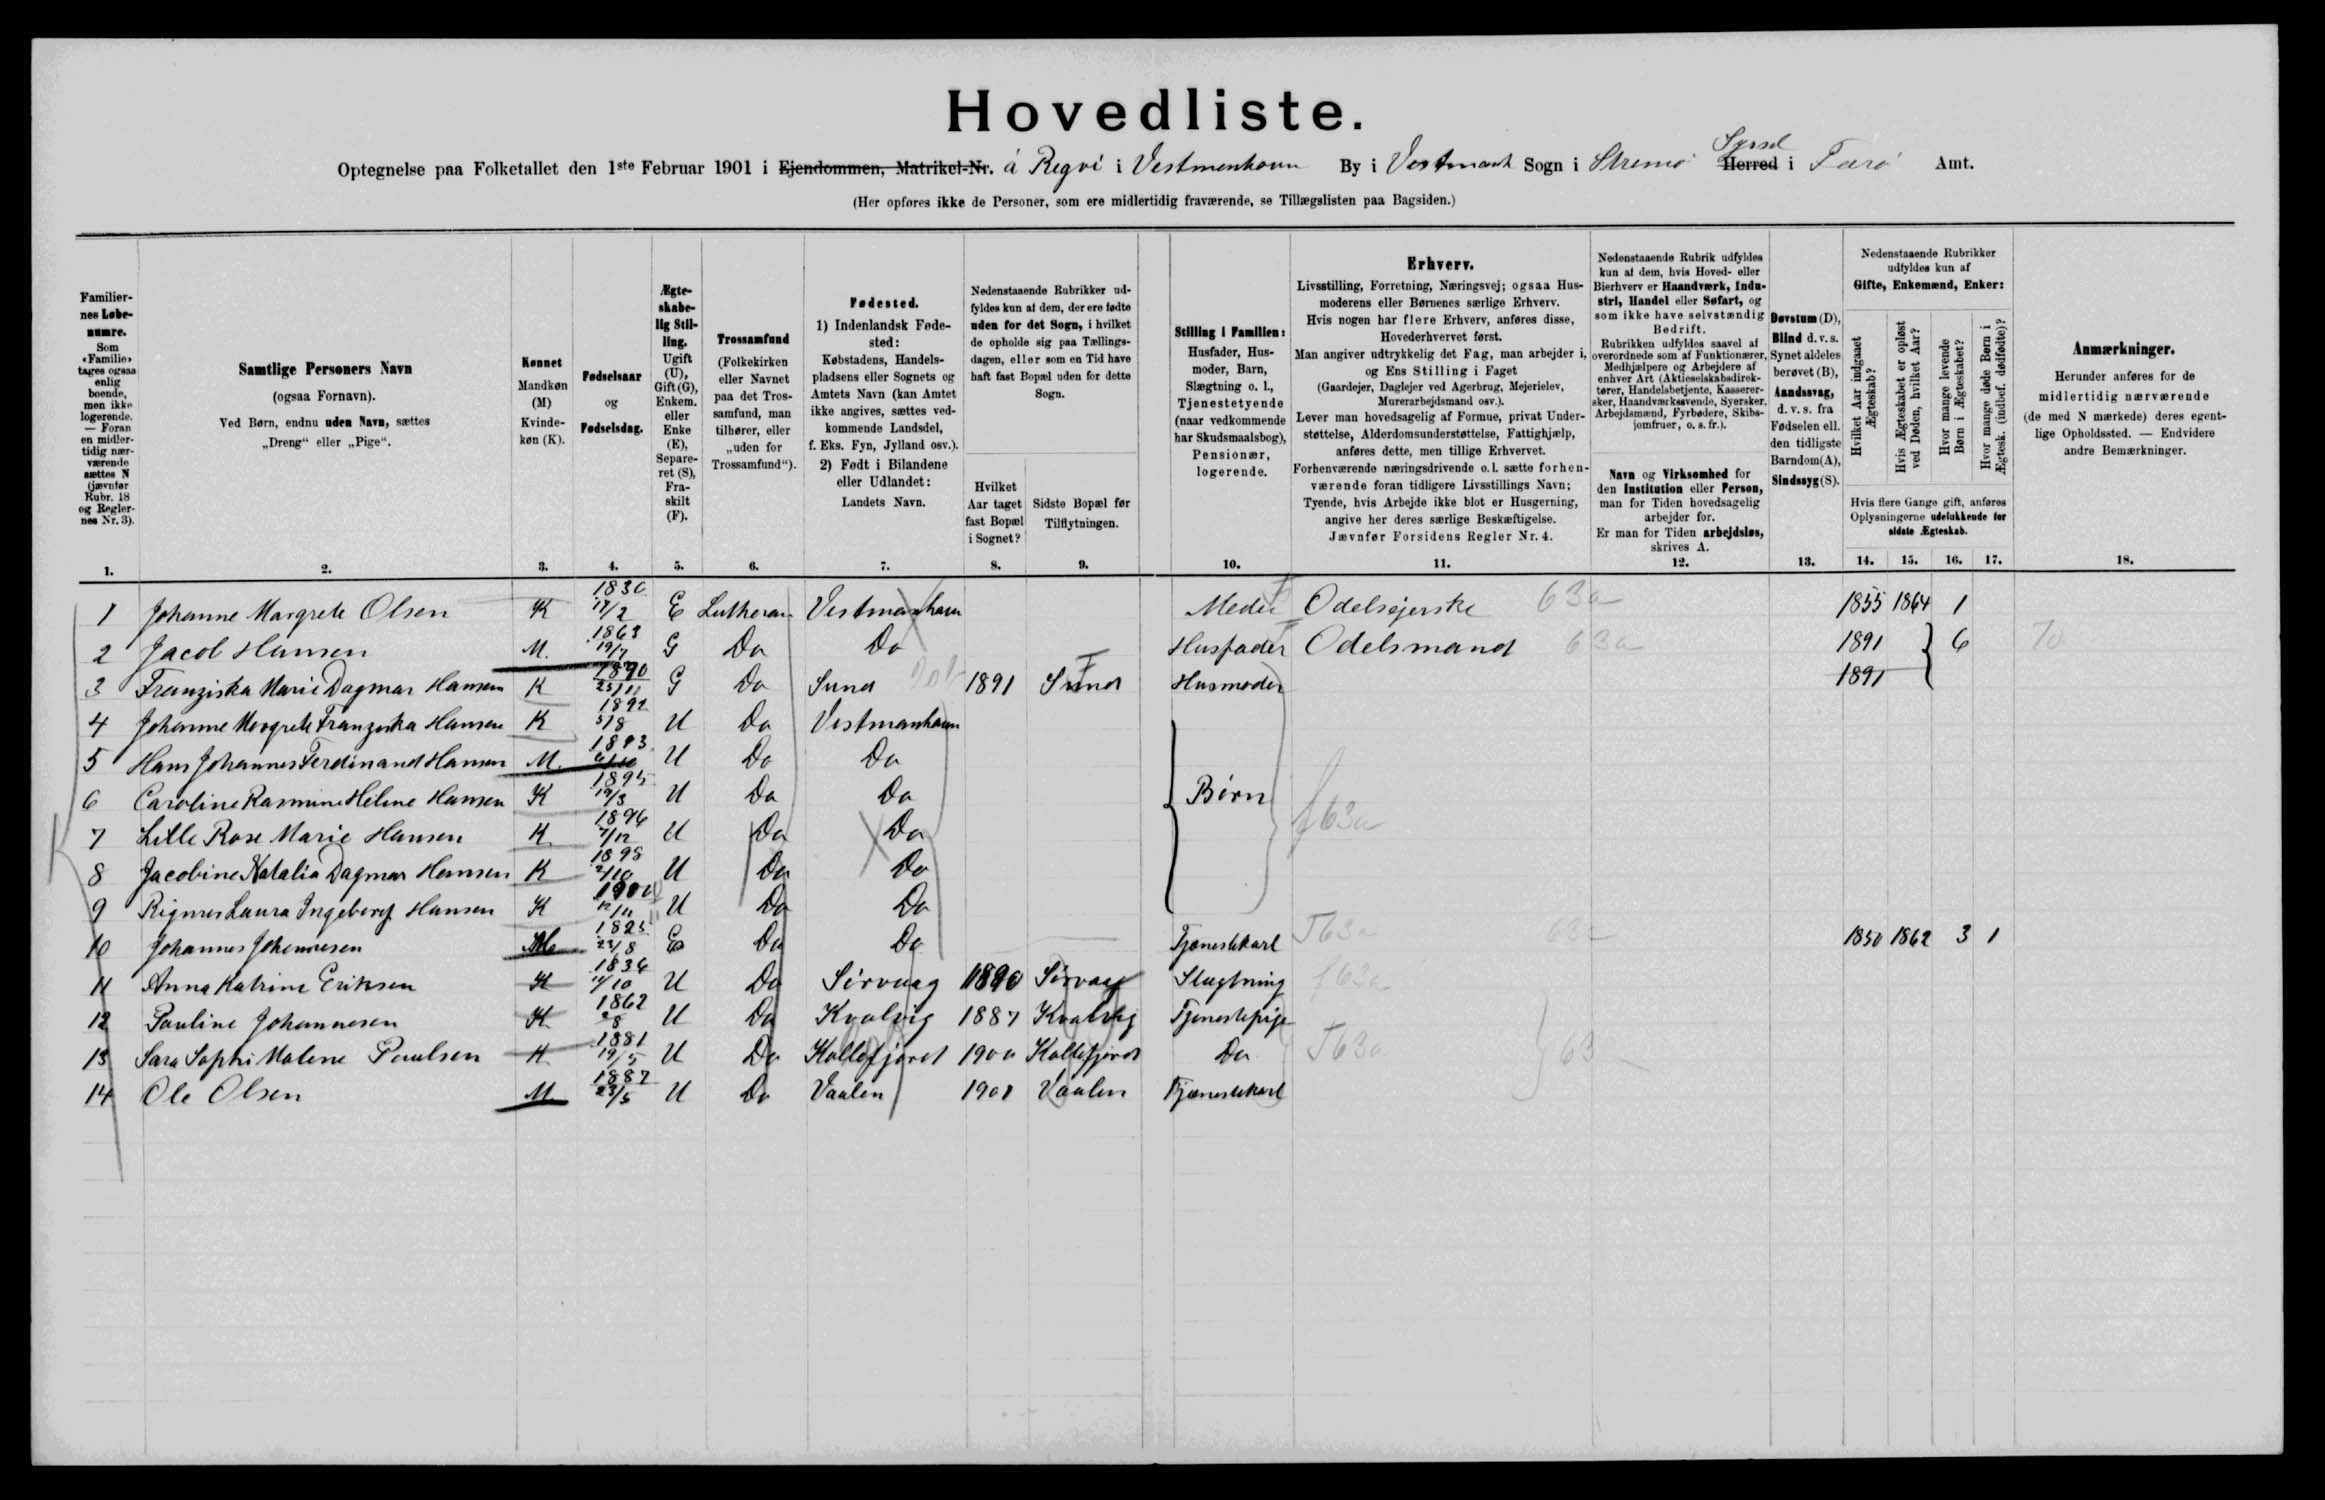 Hovedliste.
Syssel
Optegnelse paa Folketallet den 1ste Februar 1901 i Ejendommen, Matrikel-Nr. á Regvi i Vestmenhavn By i Vestmanh Sogn i Strømø Herred i Færø Amt.
(Her opføres ikke de Personer, som ere midlertidig fraværende, se Tillægslisten paa Bagsiden.)
Familiernes Løbenumre. Som «Familie» tages ogsaa enlig boende, men ikke logerende. — Foran en midlertidig nærværende sættes N (jævnfør Rubr. 18 og Reglernes Nr. 3).
Samtlige Personers Navn (ogsaa Fornavn). Ved Børn, endnu uden Navn, sættes „Dreng“ eller „Pige“.
Kønnet Mandkøn (M) Kvindekøn (K).
Fødselsaar og Fødselsdag.
Ægteskabelig Stilling. Ugift (U), Gift (G), Enkem. eller Enke (E), Separeret (S), Fraskilt (F).
Trossamfund (Folkekirken eller Navnet paa det Trossamfund, man tilhører, eller „uden for Trossamfund“).
Fødested. 1) Indenlandsk Fødested: Købstadens, Handelspladsens eller Sognets og Amtets Navn (kan Amtet ikke angives, sættes vedkommende Landsdel, f. Eks. Fyn, Jylland osv.). 2) Født i Bilandene eller Udlandet: Landets Navn.
Nedenstaaende Rubrikker udfyldes kun af dem, der ere fødte uden for det Sogn, i hvilket de opholde sig paa Tællingsdagen, eller som en Tid have haft fast Bopæl uden for dette Sogn.
Hvilket Aar taget fast Bopæl i Sognet?
Sidste Bopæl før Tilflytningen.
Stilling i Familien: Husfader, Husmoder, Barn, Slægtning o. l., Tjenestetyende (naar vedkommende har Skudsmaalsbog), Pensionær, logerende.
Erhverv. Livsstilling, Forretning, Næringsvej; ogsaa Husmoderens eller Børnenes særlige Erhverv. Hvis nogen har flere Erhverv, anføres disse, Hovederhvervet først. Man angiver udtrykkelig det Fag, man arbejder i, og Ens Stilling i Faget (Gaardejer, Daglejer ved Agerbrug, Mejerielev, Murerarbejdsmand osv.). Lever man hovedsagelig af Formue, privat Understøttelse, Alderdomsunderstøttelse, Fattighjælp, anføres dette, men tillige Erhvervet. Forhenværende næringsdrivende o. l. sætte forhenværende foran tidligere Livsstillings Navn; Tyende, hvis Arbejde ikke blot er Husgerning, angive her deres særlige Beskæftigelse. Jævnfør Forsidens Regler Nr. 4.
Nedenstaaende Rubrik udfyldes kun af dem, hvis Hoved- eller Bierhverv er Haandværk, Industri, Handel eller Søfart, og som ikke have selvstændig Bedrift. Rubrikken udfyldes saavel af overordnede som af Funktionærer, Medhjælpere og Arbejdere af enhver Art (Aktieselskabsdirektører, Handelsbetjente, Kasserersker, Haandværkssvende, Syersker, Arbejdsmænd, Fyrbødere, Skibsjomfruer, o. s. fr.).
Navn og Virksomhed for den Institution eller Person, man for Tiden hovedsagelig arbejder for. Er man for Tiden arbejdsløs, skrives A.
Døvstum (D), Blind d. v. s. Synet aldeles berøvet (B), Aandssvag, d. v. s. fra Fødselen ell. den tidligste Barndom (A), Sindssyg (S).
Nedenstaaende Rubrikker udfyldes kun af Gifte, Enkemænd, Enker:
Hvilket Aar indgaaet Ægteskab?
Hvis Ægteskabet er opløst ved Døden, hvilket Aar?
Hvor mange levende Børn i Ægteskabet?
Hvor mange døde Børn i Ægtesk. (indbef. dødfødte)?
Hvis flere Gange gift, anføres Oplysningerne udelukkende for sidste Ægteskab.
Anmærkninger. Herunder anføres for de midlertidig nærværende (de med N mærkede) deres egentlige Opholdssted. — Endvidere andre Bemærkninger.
1. 2. 3. 4. 5. 6. 7. 8. 9. 10. 11. 12. 13. 14. 15. 16. 17. 18.
1 Johanne Margrete Olsen K 1830 17/2 E Lutheran Vestmanhavn Moder Odelsejerske 63a 1855 1864 1
2 Jacob Hansen M. 1863 19/7 G Do Do Husfader Odelsmand 63a 1891 6
3 Franziska Marie Dagmar Hansen K 1870 G Do Sund 1891 Sund Husmoder 1891
4 Johanne Margrete Franziska Hansen K 1892 5/8 U Do Vestmanhavn
5 Hans Johannes Ferdinand Hansen M. 1893 U Do Do
6 Caroline Rasmine Helene Hansen K 1895 19/3 U Do Do Börn
7 Lille Rose Marie Hansen K 1896 7/12 U Do Do f63a
8 Jacobine Natalia Dagmar Hansen K 1898 2/10 U Do Do
9 Rigmor Laura Ingeborg Hansen K 1900 12/11 U Do Do
10 Johannes Johannesen M 1825 23/8 E Do Do Tjenestekarl T63a 63a 1850 1862 3 1
11 Anna Katrine Eriksen K 1834 11/10 U Do Sörvaag 1890 Sörvaag Slægtning f63a
12 Pauline Johannesen K 1862 U Do Kvalvig 1887 Kvalvig Tjenestepige
13 Sara Sophi Malene Poulsen K 1881 19/5 U Do Kollefjord 1900 Kollefjord Do T63a 63
14 Ole Olsen M 1882 23/5 U Do Vaalen 1901 Vaalen Tjenestekarl